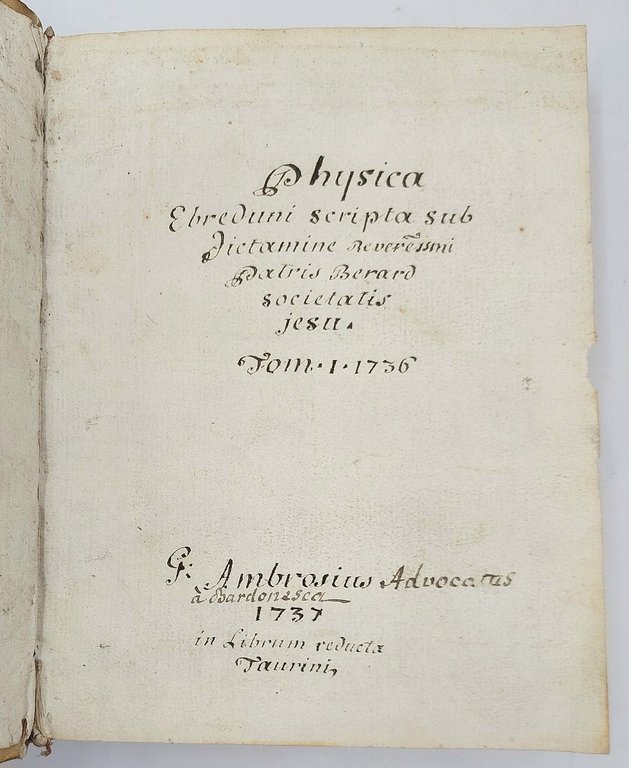 Physica
Ebreduni scripta sub
Dictamine Reverēssmi
Patris Berard
societatis
jesu.
Tom. 1. 1736
G: Ambrosius Advocatus
à Bardonesca
1737
in Librum reducta
Taurini,